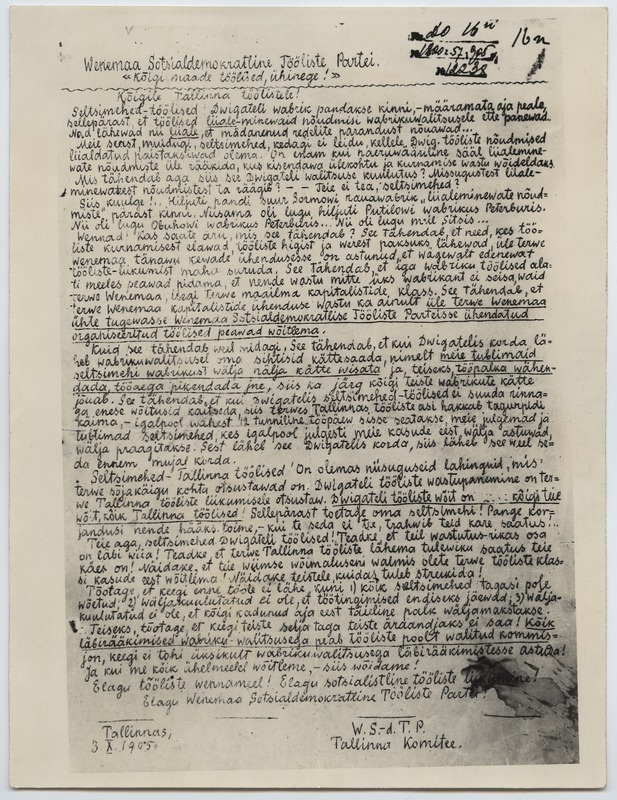 16 n
Wenemaa Sotsialdemokratline Tööliste Partei.
«Kõigi maade töölised, ühinege!»
Kõigile Tallinna töölistele!
Seltsimehed-töölised! Dwigateli wabrik pandakse kinni, – määramata aja peale,
sellepärast, et töölised liiale-minewaid nõudmisi wabrikuwalitsusele ette panewad.
Nad lähewad nii liiale, et mädanenud redelite parandust nõuawad...
Meie seast, muidugi, seltsimehed, kedagi ei leidu, kellele Dwig. tööliste nõudmised
liialdatud paistaksiwad olema. On enam kui naeruwääriline sääl liialemine-
wate nõudmiste üle rääkida, kus kisendawa ülekohtu ja kurnamise wastu wõideldaks.
Mis tähendab aga siis see Dwigateli walitsuse kuulutus? Missugustest liiale-
minewatest nõudmistest ta räägib? – – Teie ei tea, seltsimehed?
Siis kuulge!.. Hiljuti pandi suur Sormowi rauawabrik „liialeminewate nõud-
miste" pärast kinni. Niisama oli lugu hiljuti Putilowi wabrikus Peterburis.
Nii oli lugu Obuhowi wabrikus Peterburis... Nii oli lugu meil Sitsis...
Wennad! Kas saate aru mis see tähendab? See tähendab, et need, kes töö-
liste kurnamisest elawad, tööliste higist ja werest paksuks lähewad, üle terwe
wenemaa tänawu kewade ühendusesse on astunud, et wägewalt edenewat
tööliste-liikumist maha suruda. See tähendab, et iga wabriku töölised ala-
ti meeles peawad pidama, et nende wastu mitte üks wabrikant ei seisa, waid
terwe Wenemaa, isegi terwe maailma kapitalistide klass. See tähendab, et
terwe Wenemaa kapitalistide ühenduse wastu ka ainult üle terwe Wenemaa
ühte tugewasse Wenemaa Sotsialdemokratlisse Tööliste Parteisse ühendatud
organiseeritud töölised peawad wõitlema.
Kuid see tähendab weel midagi. See tähendab, et kui Dwigatelis korda lä-
heb wabrikuwalitsusel oma sihtisid kättesaada, nimelt meie tublimaid
seltsimehi wabrikust wälja nälja kätte wisata ja, teiseks, tööpalka wähen-
dada, tööaega pikendada jne, siis ka järg kõigi teiste wabrikute kätte
jõuab. See tähendab, et kui Dwigatelis seltsimehed-töölised ei suuda rinna-
ga enese wõitusid kaitseda, siis terwes Tallinnas tööliste asi hakkab tagurpidi
käima, – igalpool wähest 12 tunniline tööpäew sisse seatakse, meie julgemad ja
tublimad seltsimehed, kes igalpool julgesti meie kasude eest wälja astuwad,
wälja praagitakse. Sest läheb see Dwigatelis korda, siis läheb see weel se-
da ennem mujal korda.
Seltsimehed - Tallinna töölised! On olemas niisuguseid lahinguid, mis
terwe sõjakäigu kohta otsustawad on. Dwigateli tööliste wastupanemine on ter-
we Tallinna tööliste liikumisele otsustaw. Dwigateli tööliste wõit on ... kõigi teie
wõit, kõik Tallinna töölised! Sellepärast toetage oma seltsimehi! Pange kor-
jandusi nende hääks toime, – kui te seda ei tee, trahwib teid kare saatus!..
Teie aga, seltsimehed Dwigateli töölised! Teadke, et teil wastutus-rikas osa
on läbi wiia! Teadke, et terwe Tallinna tööliste lähema tulewiku saatus teie
käes on! Näidake, et teie wiimse wõimaluseni walmis olete terwe tööliste klas-
si kasude eest wõitlema! Näidake teistele, kuidas tuleb streikida!
Tõotage, et keegi enne tööle ei lähe, kuni 1) kõik seltsimehed tagasi pole
wõetud, 2) wäljakuulutatud ei ole, et töötingimised endiseks jäewad; 3) wälja-
kuulutatud ei ole, et kõigi kadunud aja eest täieline palk wäljamakstakse.
Teiseks, tõotage, et keegi teiste selja taga teiste äraandjaks ei saa! Kõik
läbirääkimised wabriku-walitsusega peab tööliste poolt walitud kommis-
jon, keegi ei tohi üksikult wabrikuwalitsusega läbirääkimistesse astuda!
Ja kui me kõik ühelmeelel wõitleme, – siis wõidame!
Elagu tööliste wennameel! Elagu sotsialistline tööliste liikumine!
Elagu Wenemaa Sotsialdemokratline Tööliste Partei!
Tallinnas,
3 X. 1905.
W. S.-d. T. P.
Tallinna Komitee.